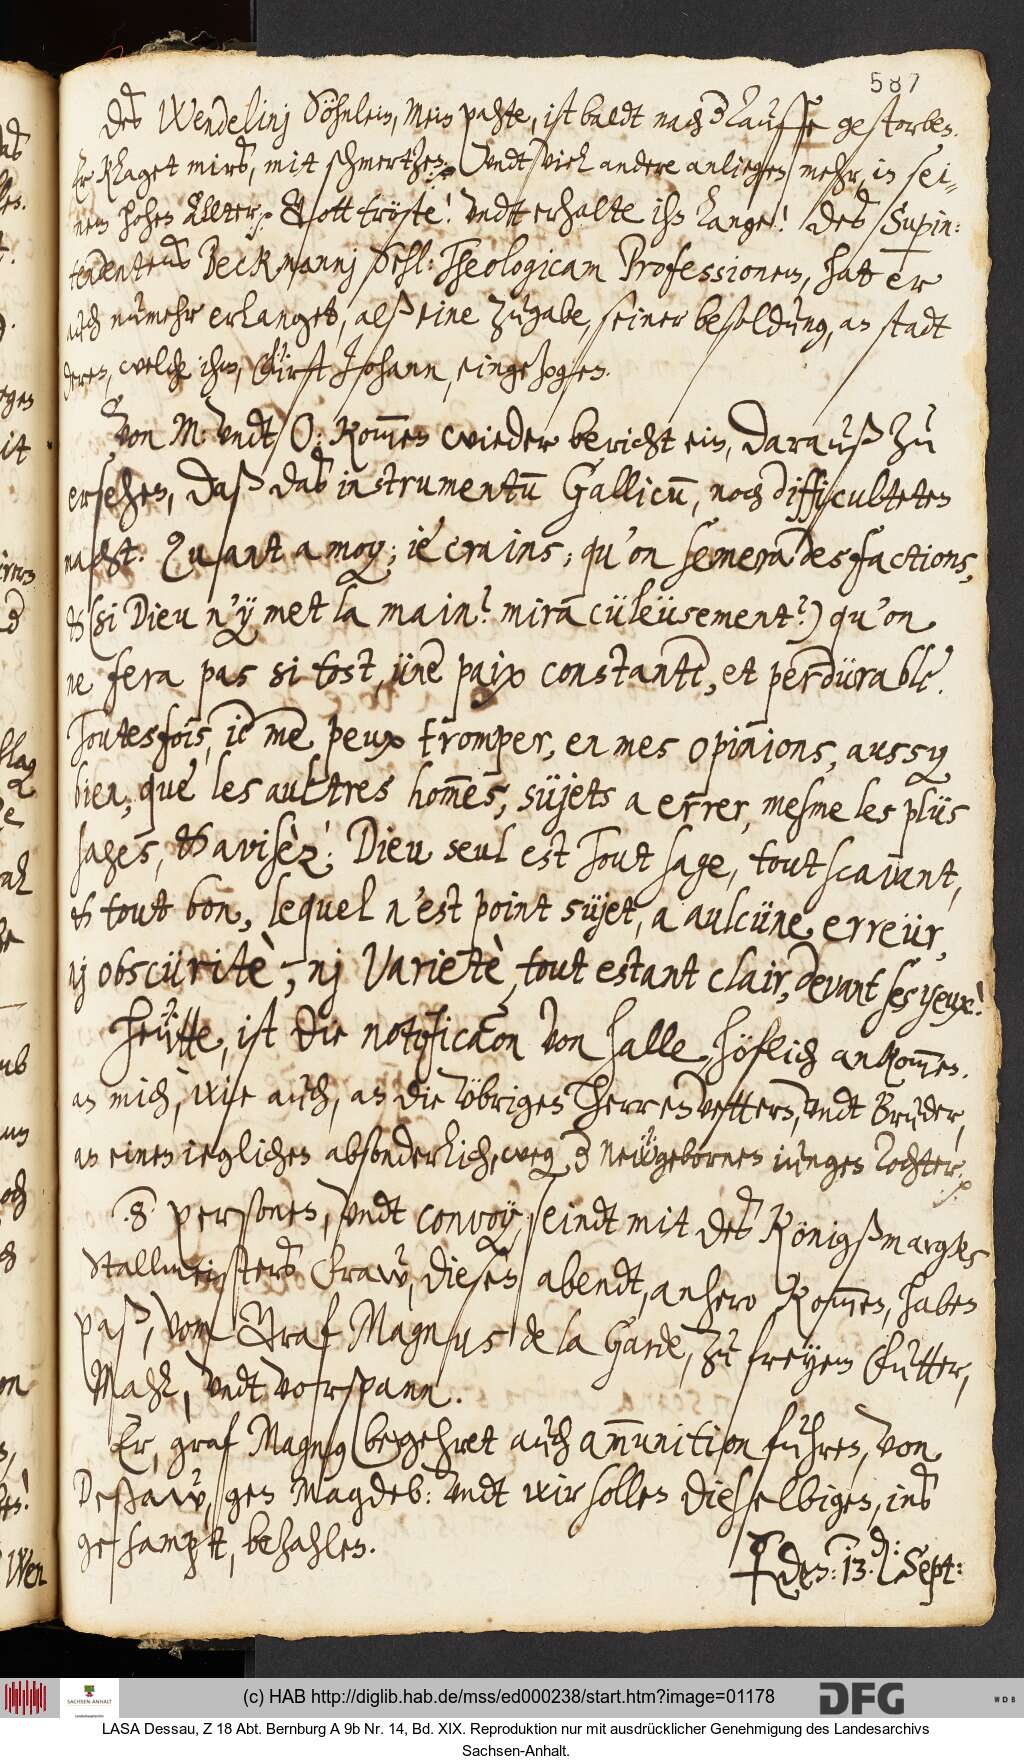 587
deß Wendelinj Söhnlein, mein pahte, ist baldt nach d Tauffe gestorben.
Er klaget mirs, mit schmertzen, undt viel andere anliegen mehr, in sei-
nem hohen Alter. Gott tröste! undt erhalte ihn lange! Des Supin:
tendentens Beckmannj Sehl: Theologicam Professionem, hat er
auch numehr erlanget, alß eine zugabe, seiner besoldung, an stadt
deren, welche ihm, Fürst Johann, eingezogen.
Von M: undt O: kom̅en wieder bericht ein, darauß zu
ersehen, daß das instrumentu̅ Gallicu̅, noch difficulteten
macht. Quant a moy; ie crains; qu'on semera des factions,
& (si Dieu n'ÿ met la main? miracüleüsement?) qu'on
ne fera pas si tost, üne paix constante, et perdürable.
Toutesfois, ie me peux tromper, en mes opinions, aussy
bien, que les aultres hom̅es, süjets a errer, mesme les plüs
sages, & avisèz! Dieu seul est Tout sage, tout scavant,
& tout bon, lequel n'est point süjet, a aulcüne erreür,
nj obscüritè, nj Varietè, tout estant clair, devant ses yeux!
Heütte, ist die notificaon von Halle, höflich ankom̅en.
an mich, wie auch, an die übrigen Herren Vettern, undt Brüder,
an einen ieglichen absonderlich, weg d neẅgebornen jungen Tochter.
8 personen, undt convoy, seindt mit des Königßmargks
Stallmeisters Fraw, diesen abendt, anhero kom̅en, haben
paß, vom Graf Magnus de la Garde, zu freyem Futter,
Mahl, undt vorspann.
Er, graf Magnus begehret auch am̅unition fuhren, von
Deßaw, gen Magdeb: undt wir sollen dieselbigen, ins
gesampt, bezahlen.
den: 13. d: Sept:
(c) HAB http://diglib.hab.de/mss/ed000238/start.htm?image=01178
SACHSEN-ANHALT
DFG
WDB
LASA Dessau, Z 18 Abt. Bernburg A 9b Nr. 14, Bd. XIX. Reproduktion nur mit ausdrücklicher Genehmigung des Landesarchivs
Sachsen-Anhalt.